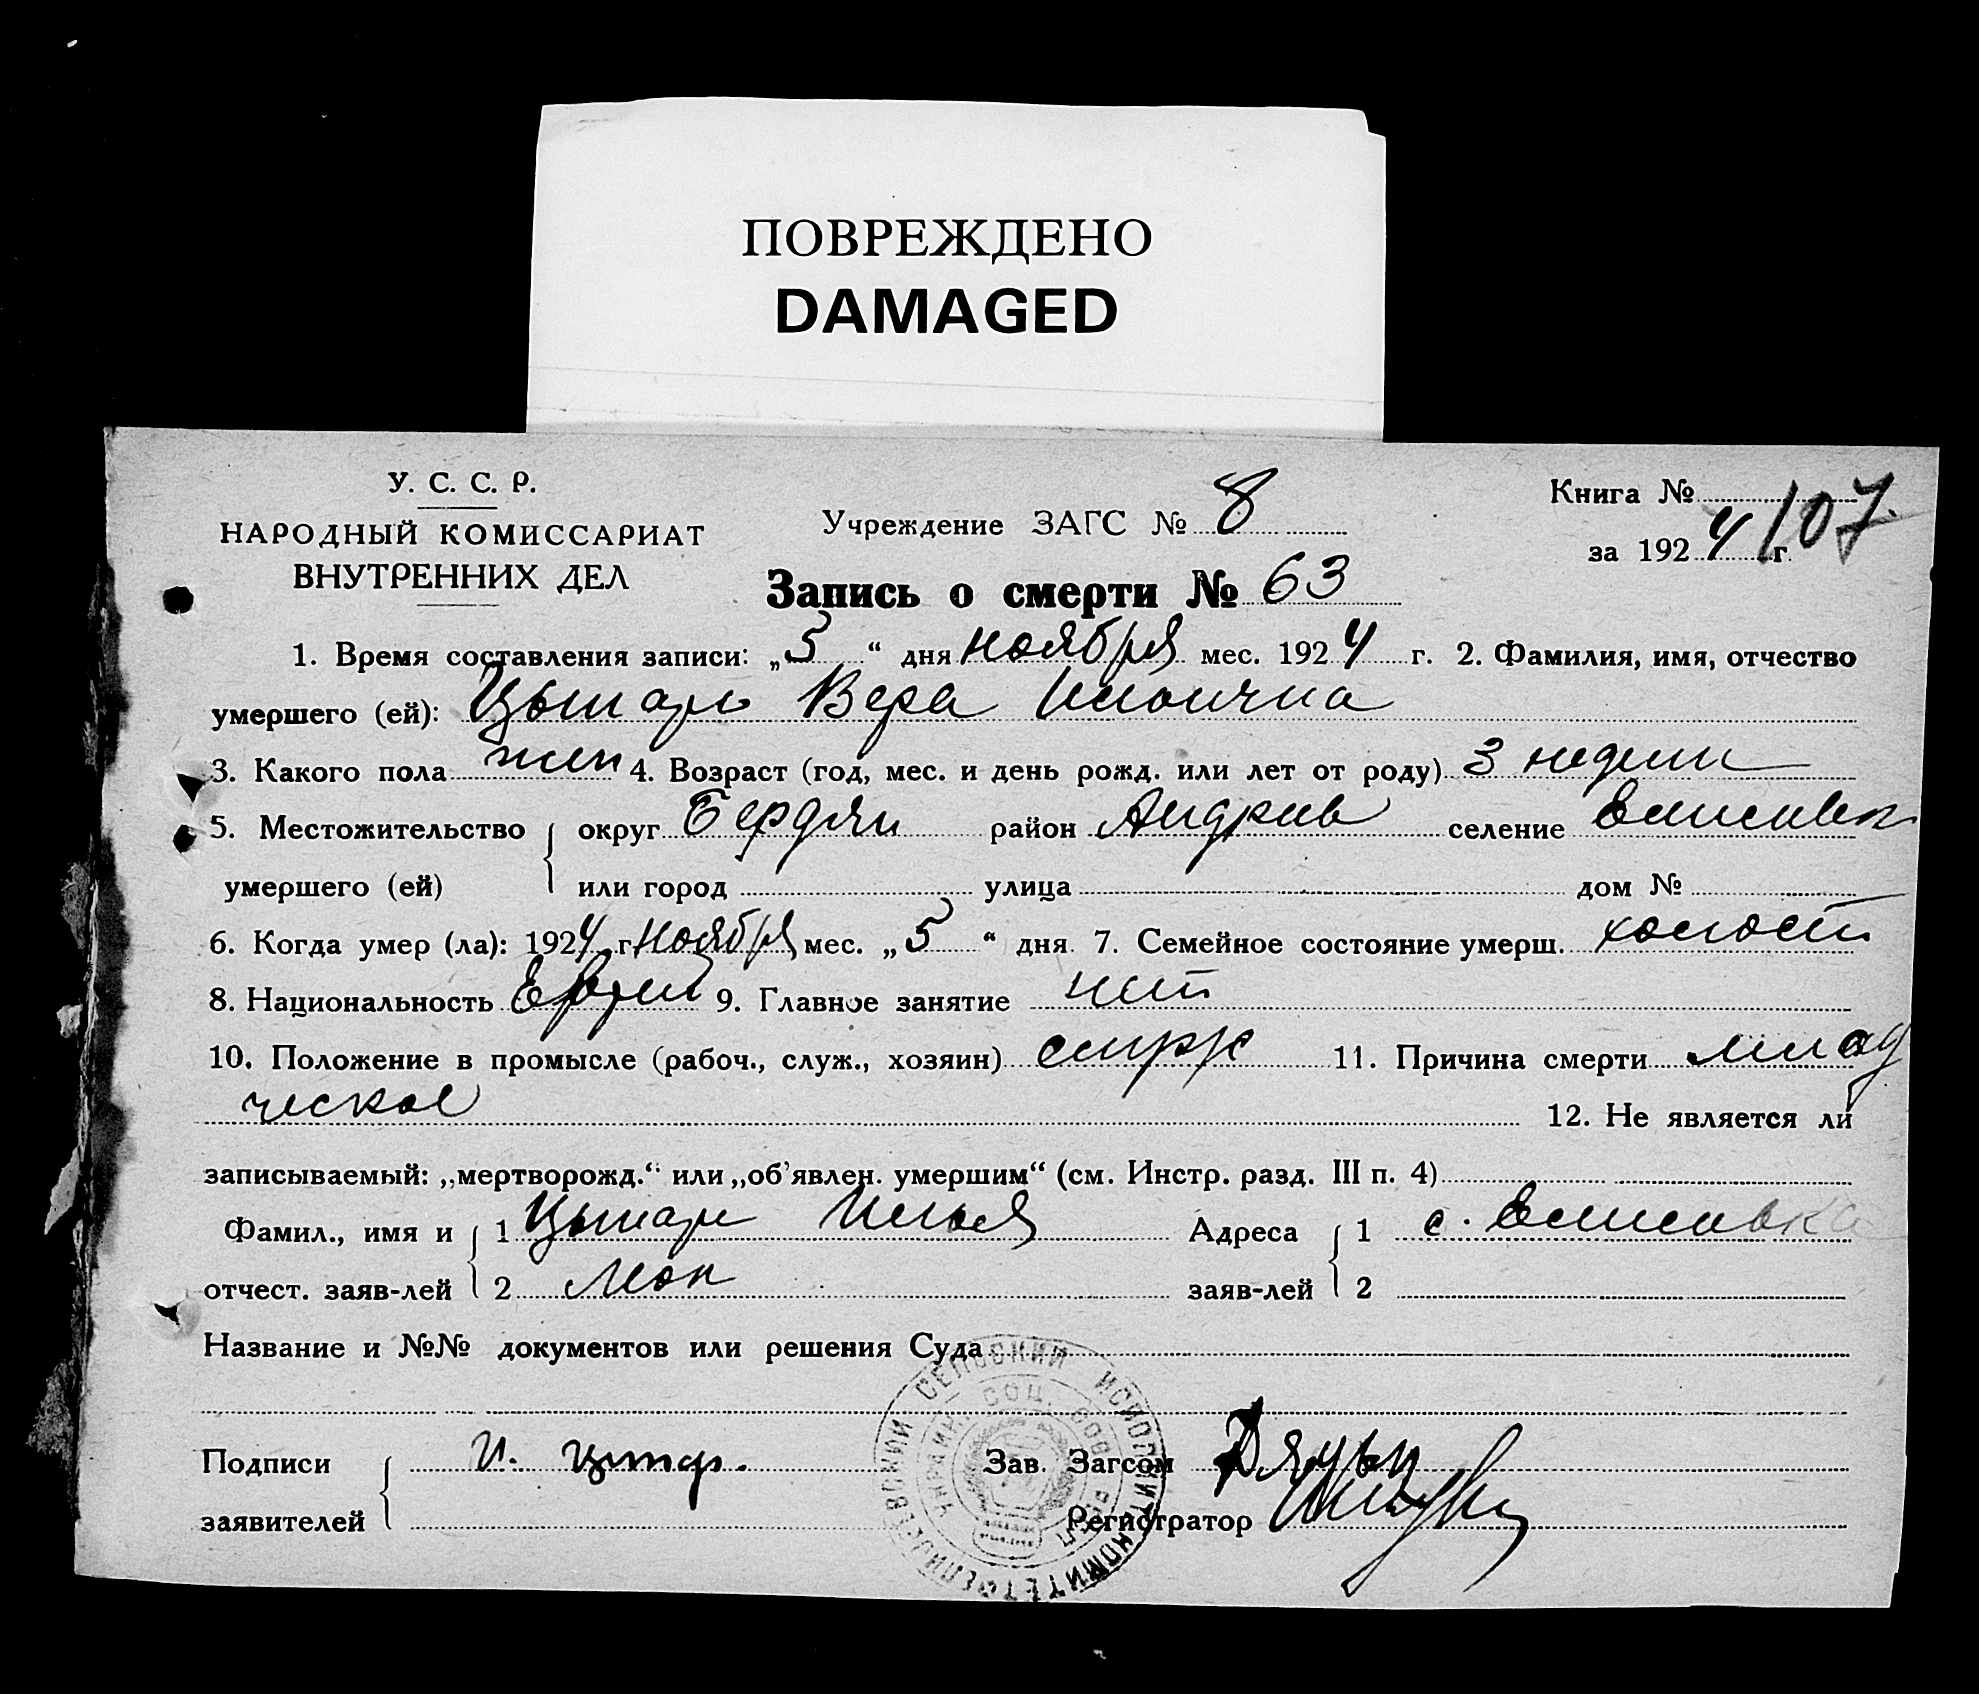 ПОВРЕЖДЕНО
DAMAGED
У. С. С. Р.
НАРОДНЫЙ КОМИССАРИАТ
ВНУТРЕННИХ ДЕЛ
Учреждение ЗАГС № 8
Книга № 107
за 1924 г.
Запись о смерти № 63
1. Время составления записи: „5“ дня ноября мес. 1924 г. 2. Фамилия, имя, отчество
умершего (ей): Вера
3. Какого пола жен 4. Возраст (год, мес. и день рожд. или лет от роду) 3 недели
5. Местожительство округ Бердян район Андреев селение
умершего (ей) или город улица дом №
6. Когда умер (ла): 1924 г. ноября мес. „5“ дня 7. Семейное состояние умерш. холост
8. Национальность Еврей 9. Главное занятие нет
10. Положение в промысле (рабоч., служ., хозяин) 11. Причина смерти млад
ческое
12. Не является ли
записываемый: „мертворожд.“ или „об'явлен. умершим“ (см. Инстр. разд. III п. 4)
Фамил., имя и 1 Илья Адреса 1 с.
отчест. заяв-лей 2 заяв-лей 2
Название и №№ документов или решения Суда
Подписи И. Зав. Загсом
заявителей Регистратор
СЕЛЬСКИЙ ИСПОЛНИТ. КОМИТЕТ
УКРАИН. СОЦ. СОВ. РЕСП.